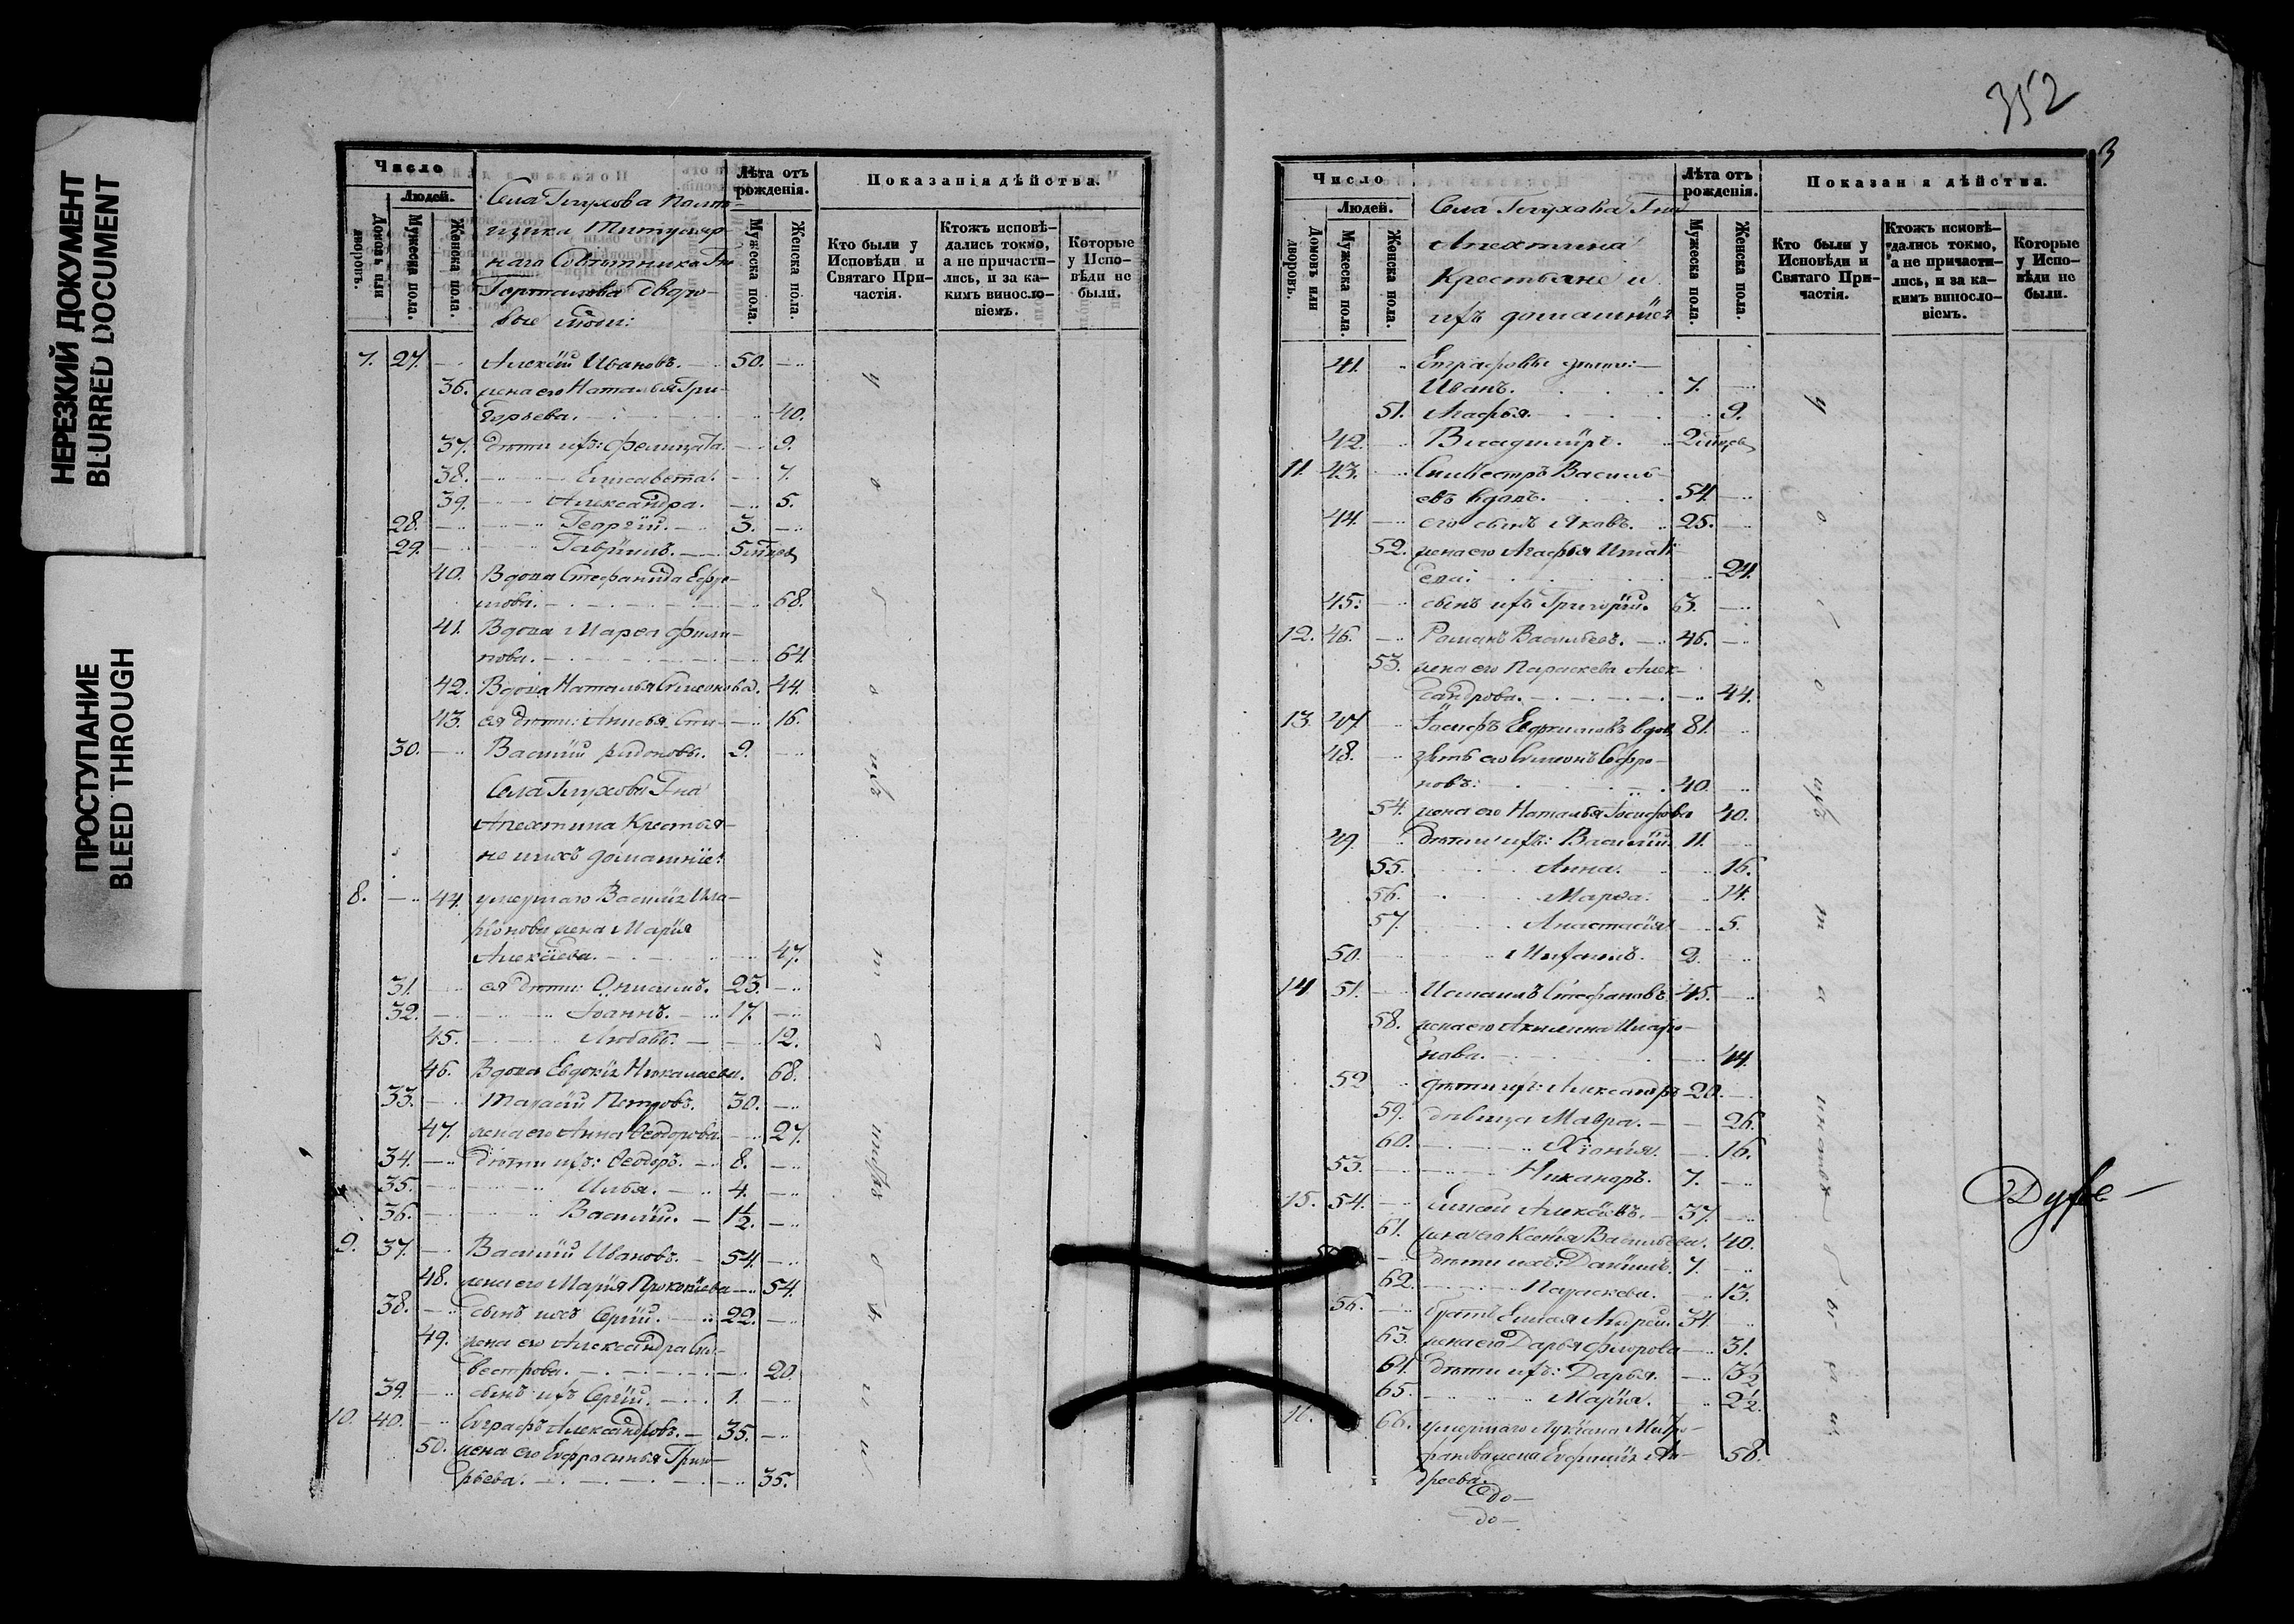 НЕРЕЗКИЙ ДОКУМЕНТ
BLURRED DOCUMENT
ПРОСТУПАНИЕ
BLEED THROUGH
Число
Людей.
Домовъ или дворовъ.
Мужеска пола.
Женска пола.
Села Глухова
Титуляр-
наго Совѣтника Гна
дворо-
вые люди:
Лѣта отъ рожденія.
Мужеска пола.
Женска пола.
Показанія дѣйства.
Кто были у Исповѣди и Святаго При-частія.
Ктожъ исповѣ-дались токмо, а не причасти-лись, и за ка-кимъ винословіемъ.
Которые у Испо-вѣди не были.
7. 27. Алексѣй Ивановъ. 50.
36. жена его Наталья Гри-
горьева. 40.
37. дѣти ихъ: Фелицата. 9.
38. Елисавета. 7.
39. Александра. 5.
28. Георгій. 3.
29. Гавріилъ. 5
40. Вдова Стефанида Ефре-
мова. 68.
41. Вдова Марѳа Филип-
пова. 64.
42. Вдова Наталья Симеонова. 44.
43. ея дѣти: Анисья 16.
30. Василій 9.
Села Глухова Гна
Апехтина Крестья-
не и ихъ домашніе:
8. 44. умершаго Василія Ила-
ріонова жена Марія
Алексѣева. 47.
31. ея дѣти: Онисимъ. 23.
32. Іоаннъ. 17.
45. Любовь. 12.
46. Вдова Евдокія Николаева. 68.
33. Тарасій Петровъ. 30.
47. жена его Анна Ѳеодорова. 27.
34. дѣти ихъ: Ѳеодоръ. 8.
35. Илья. 4.
36. Василій. 1½.
9. 37. Василій Ивановъ. 54.
48. жена его Марія Прокопіева 54.
38. сынъ ихъ Сергій. 22.
49. жена его Александра Сил-
вестрова. 20.
39. сынъ ихъ Сергій. 1.
10. 40. Евграфъ Александровъ. 35.
50. жена его Евфросинья Григо-
рьева. 35.
352
3
Число
Людей.
Домовъ или дворовъ.
Мужеска пола.
Женска пола.
Села Глухова Гна
Апехтина
Крестьяне и
ихъ домашніе:
Лѣта отъ рожденія.
Мужеска пола.
Женска пола.
Показан я дѣйства.
Кто были у Исповѣди и Святаго При-частія.
Ктожъ исповѣ-дались токмо, а не причасти-лись, и за ка-кимъ винословіемъ.
Которые у Испо-вѣди не были.
41. Евграфовы дѣти:
Иванъ. 7.
51. Агафья. 9.
42. Владиміръ. 2
11. 43. Сильвестръ Василь-
евъ вдовъ. 54.
44. его сынъ Яковъ. 25.
52. жена его Агафья 24.
45. сынъ ихъ Григорій. 3.
12. 46. Романъ Васильевъ. 46.
53. жена его Параскева Алек-
сандрова. 44.
13. 47 Іосифъ Евфимовъ вдов. 81.
48. зять его Симеонъ Софро-
новъ: 40.
54. жена его Наталья Іосифова 40.
49 дѣти ихъ: Василій. 11.
55. Анна. 16.
56. Марѳа. 14.
57. Анастасія. 5.
50. Михаилъ. 2.
14 51. Измаилъ Стефановъ 45.
58. жена его Акилина Иларіо-
нова. 44.
52 дѣти ихъ: Александръ 20.
59. дѣвица Мавра. 26.
60. Хіонія. 16.
53. Никаноръ. 7.
15. 54. Елисей Алексѣевъ. 37.
61. жена его Ксенія Васильева. 40.
дѣти ихъ: Даніилъ. 7.
62. Параскева. 13.
56. братъ Елисея Андрей. 34.
63. жена его Дарья Флорова 31.
64. дѣти ихъ: Дарья. 3½
65. Марія. 2½.
16. 66. умершаго Лукіана Митро-
фанова жена Евфимія Ан-
дреева. 58.